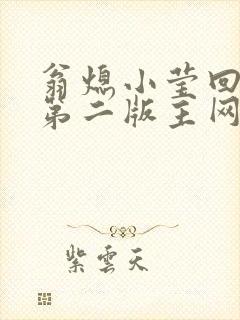 翁熄小莹回
第二版主网
紫雲天